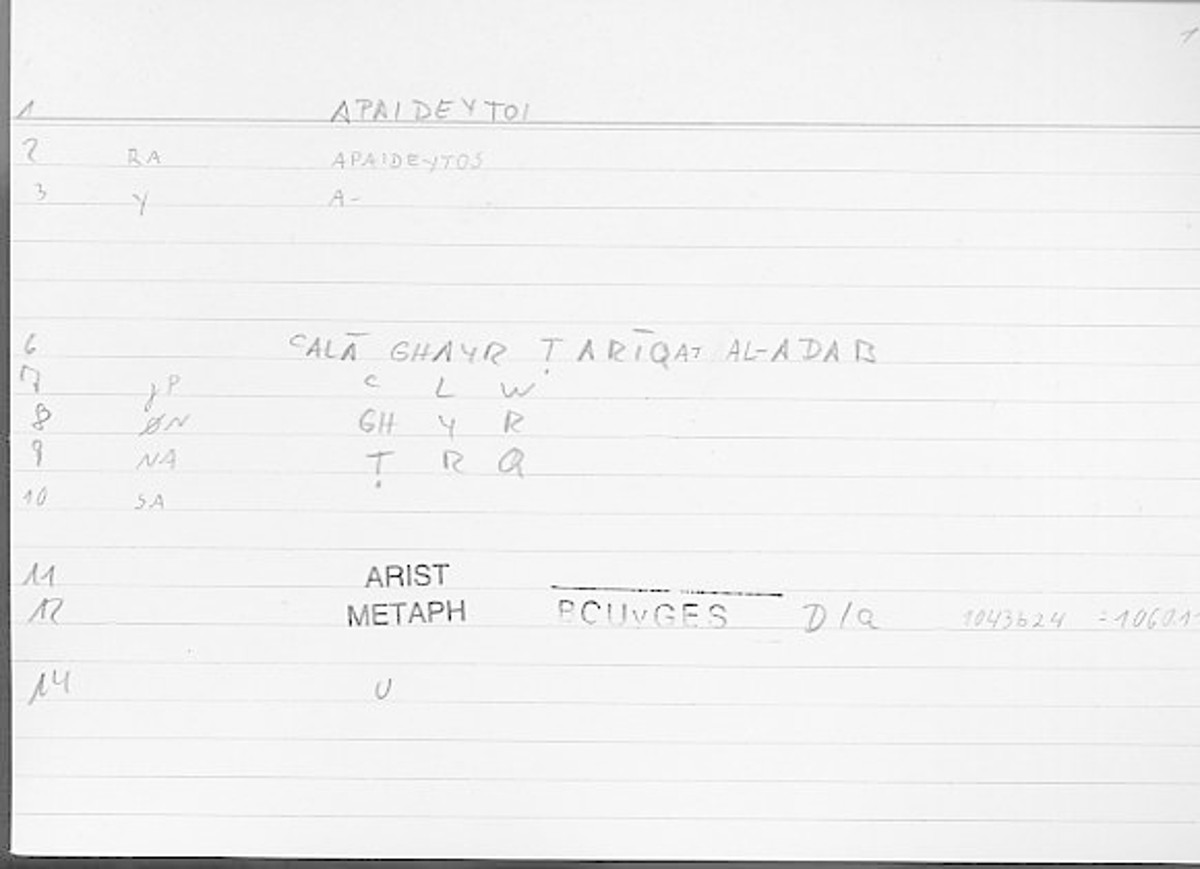 1
1 APAIDEYTOI
2 RA APAIDEYTOS
3 Y A-
6 ᶜALĀ GHAYR ṬARĪQAT AL-ADAB
7 JP ᶜ L W
8 ØN GH Y R
9 NA Ṭ R Q
10 SA
11 ARIST
12 METAPH BCUVGES D/a 1043b24 =10601
14 U